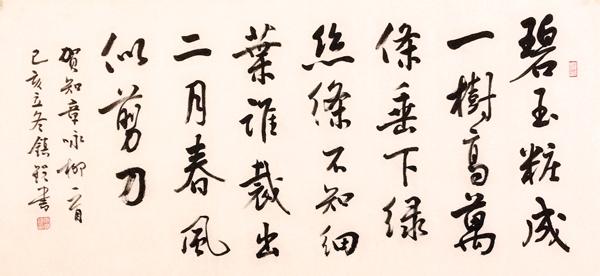 碧玉粧成
一樹高萬
條垂下绿
絲條不知细
葉誰裁出
二月春風
似剪刀
賀知章咏柳一首
己亥立冬鎮書